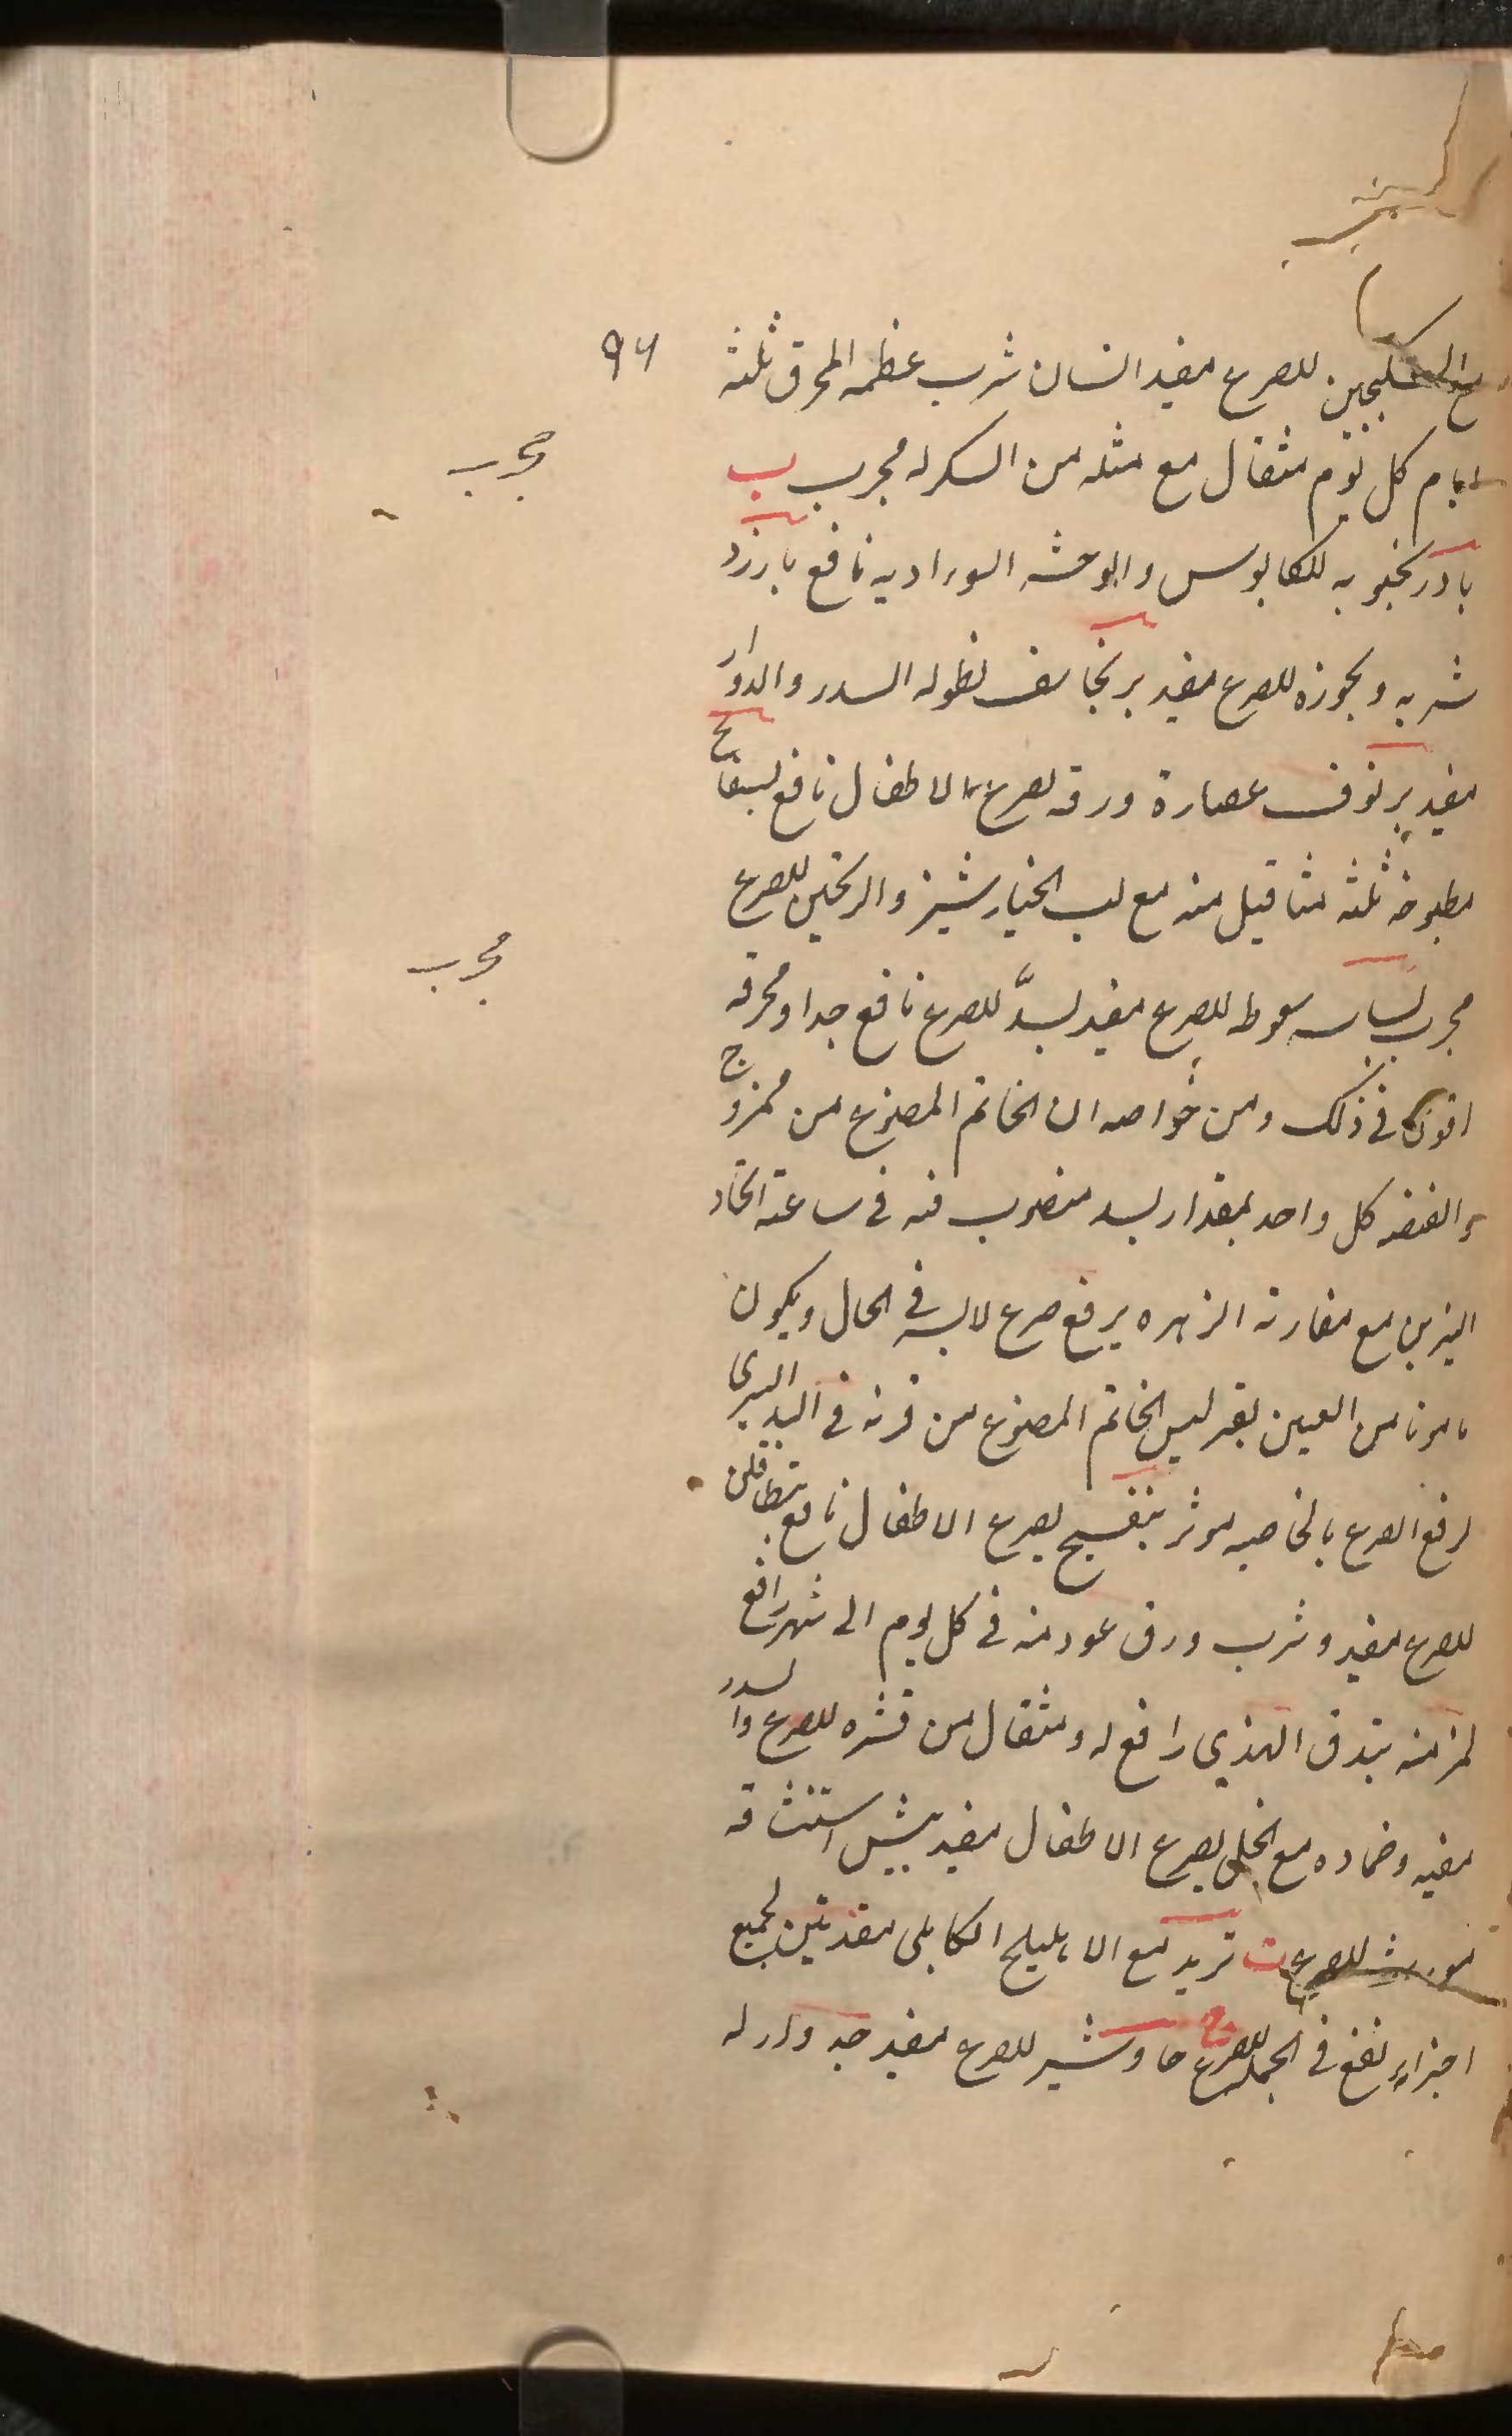 ۹۶
مع السکنجبین للصرع مفید انسان شرب عظمه المحرق ثلثه
ایام کل یوم مثقال مع مثله من السکر له مجرب ب
مجرب
بادرنجبویه للکابوس والوحشه السوداویه نافع بارزد
شربه وبخوره للصرع مفید برنجاسف نطوله السدر والدوار
مفید برنوف عصارة ورقه لصرع الاطفال نافع بسفایج
مطبوخه ثلثه مثاقیل منه مع لب الخیارشنبر والترنجبین للصرع
مجرب
مجرب بسباسه سعوطه للصرع مفید بسدّ للصرع نافع جدا ومحرقه
اقوی فی ذلک ومن خواصه ان الخاتم المصنوع من ممزوج
والفضه کل واحد بمقدار بسد منصوب فیه فی ساعة اتحاد
النیرین مع مقارنه الزهره یرفع صرع لابسه فی الحال ویکون
مامونا من العین بقر لبس الخاتم المصنوع من قرنه فی الید الیسری
لرفع الصرع بالخاصیه موثر بنفسج لصرع الاطفال نافع
للصرع مفید وشرب ورق عود منه فی کل یوم الی شهر رافع
لمزمنه بندق الهندی رافع له ومثقال من قشره للصرع والسدر
مفید وضماده مع الخل لصرع الاطفال مفید بیش استنشاقه
مورث للصرع ت تربد مع الاهلیلج الکابلی لجمیع
اجزاء نفع فی الجمله للصرع ج جاوشیر للصرع مفید جدوار له